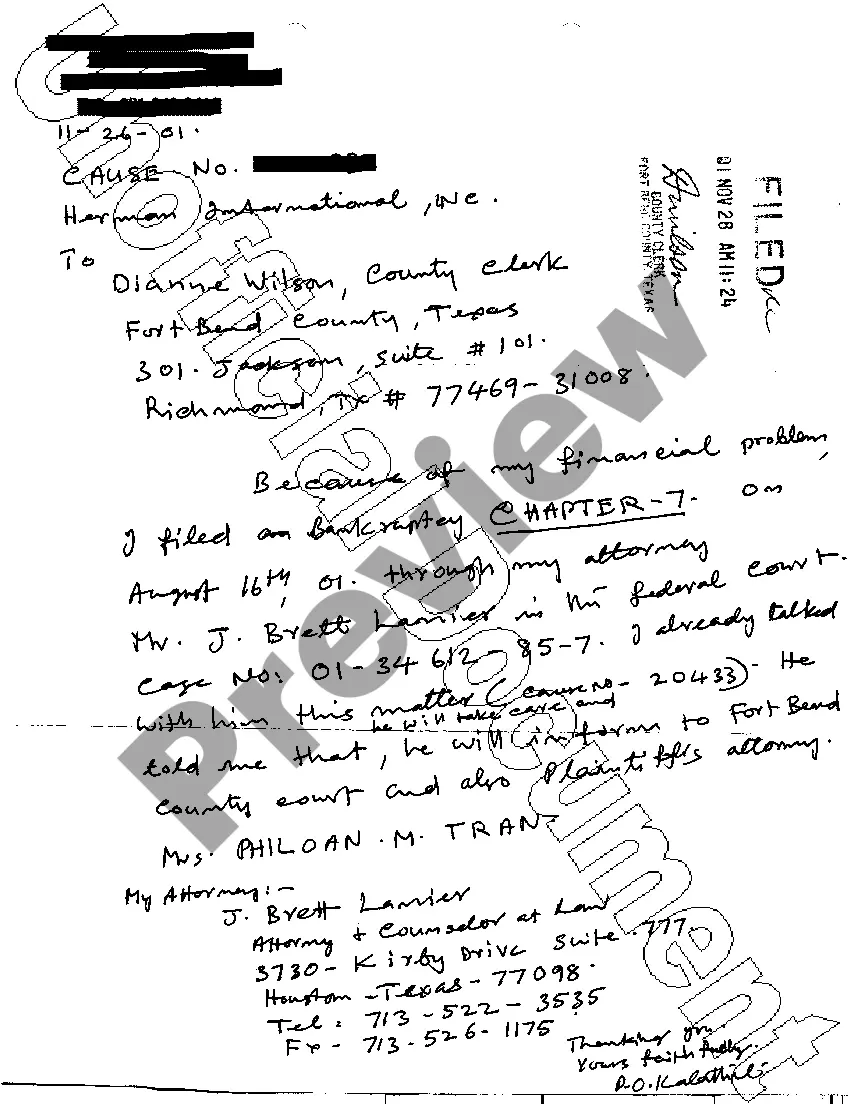 11-26-01.
CAUSE No.
Herman International, INC.
To
Dianne Wilson, County Clerk
Fort Bend County, Texas
301. Jackson, Suite # 101.
Richmond, TX # 77469-31008.
FILED
01 NOV 28 AM 11:24
COUNTY CLERK
FORT BEND COUNTY TEXAS
Because of my financial problem,
I filed an Bankruptcy CHAPTER-7. on
August 16th, 01. through my attorney
Mr. J. Brett Lanier in the federal court.
Case No: 01-34612-85-7. I already talked
with him this matter (cause no- 20433). He
he will take care and
told me that, he will inform to Fort Bend
County court and also Plaintiffs attorny.
Mrs. PHILOAN.M. TRAN-
My Attorney:-
J. Brett Lanier
Attorny & Counselor at Law
3730- Kirby Drive Suite.777.
Houston-Texas-77098.
Tel: 713-522-3535
Fx- 713-526-1175
Thanking you.
Yours faithfully.
Unofficial Document
Preview